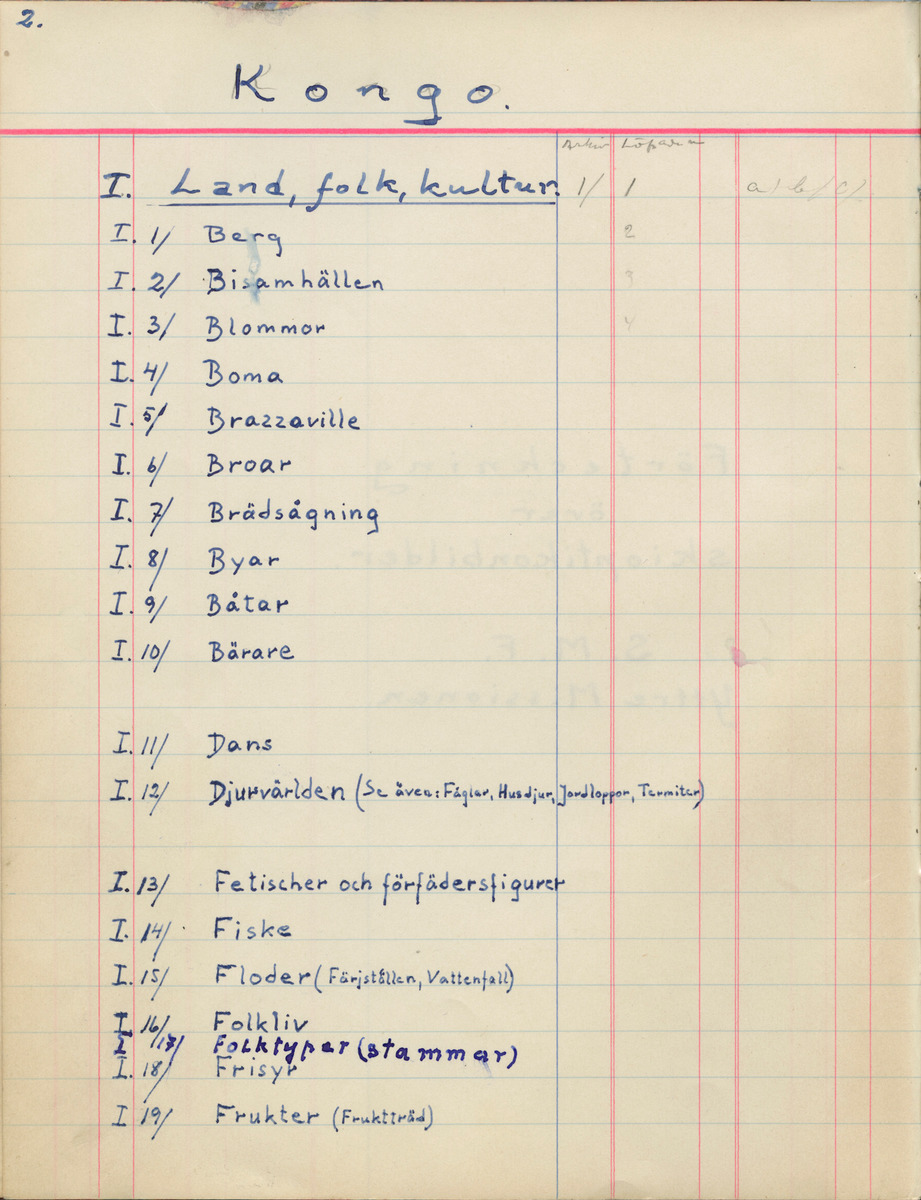 2.
Kongo.
Arkiv Löpande n
I. Land, folk, kultur. 1/ 1 a) b) c)
I. 1/ Berg 2
I. 2/ Bisamhällen 3
I. 3/ Blommor 4
I. 4/ Boma
I. 5/ Brazzaville
I. 6/ Broar
I. 7/ Brädsågning
I. 8/ Byar
I. 9/ Båtar
I. 10/ Bärare
I. 11/ Dans
I. 12/ Djurvärlden (Se även: Fåglar, Husdjur, Jordloppor, Termiter)
I. 13/ Fetischer och förfädersfigurer
I. 14/ Fiske
I. 15/ Floder (Färjställen, Vattenfall)
I. 16/ Folkliv
I 17/ Folktyper (stammar)
I. 18/ Frisyr
I 19/ Frukter (Fruktträd)